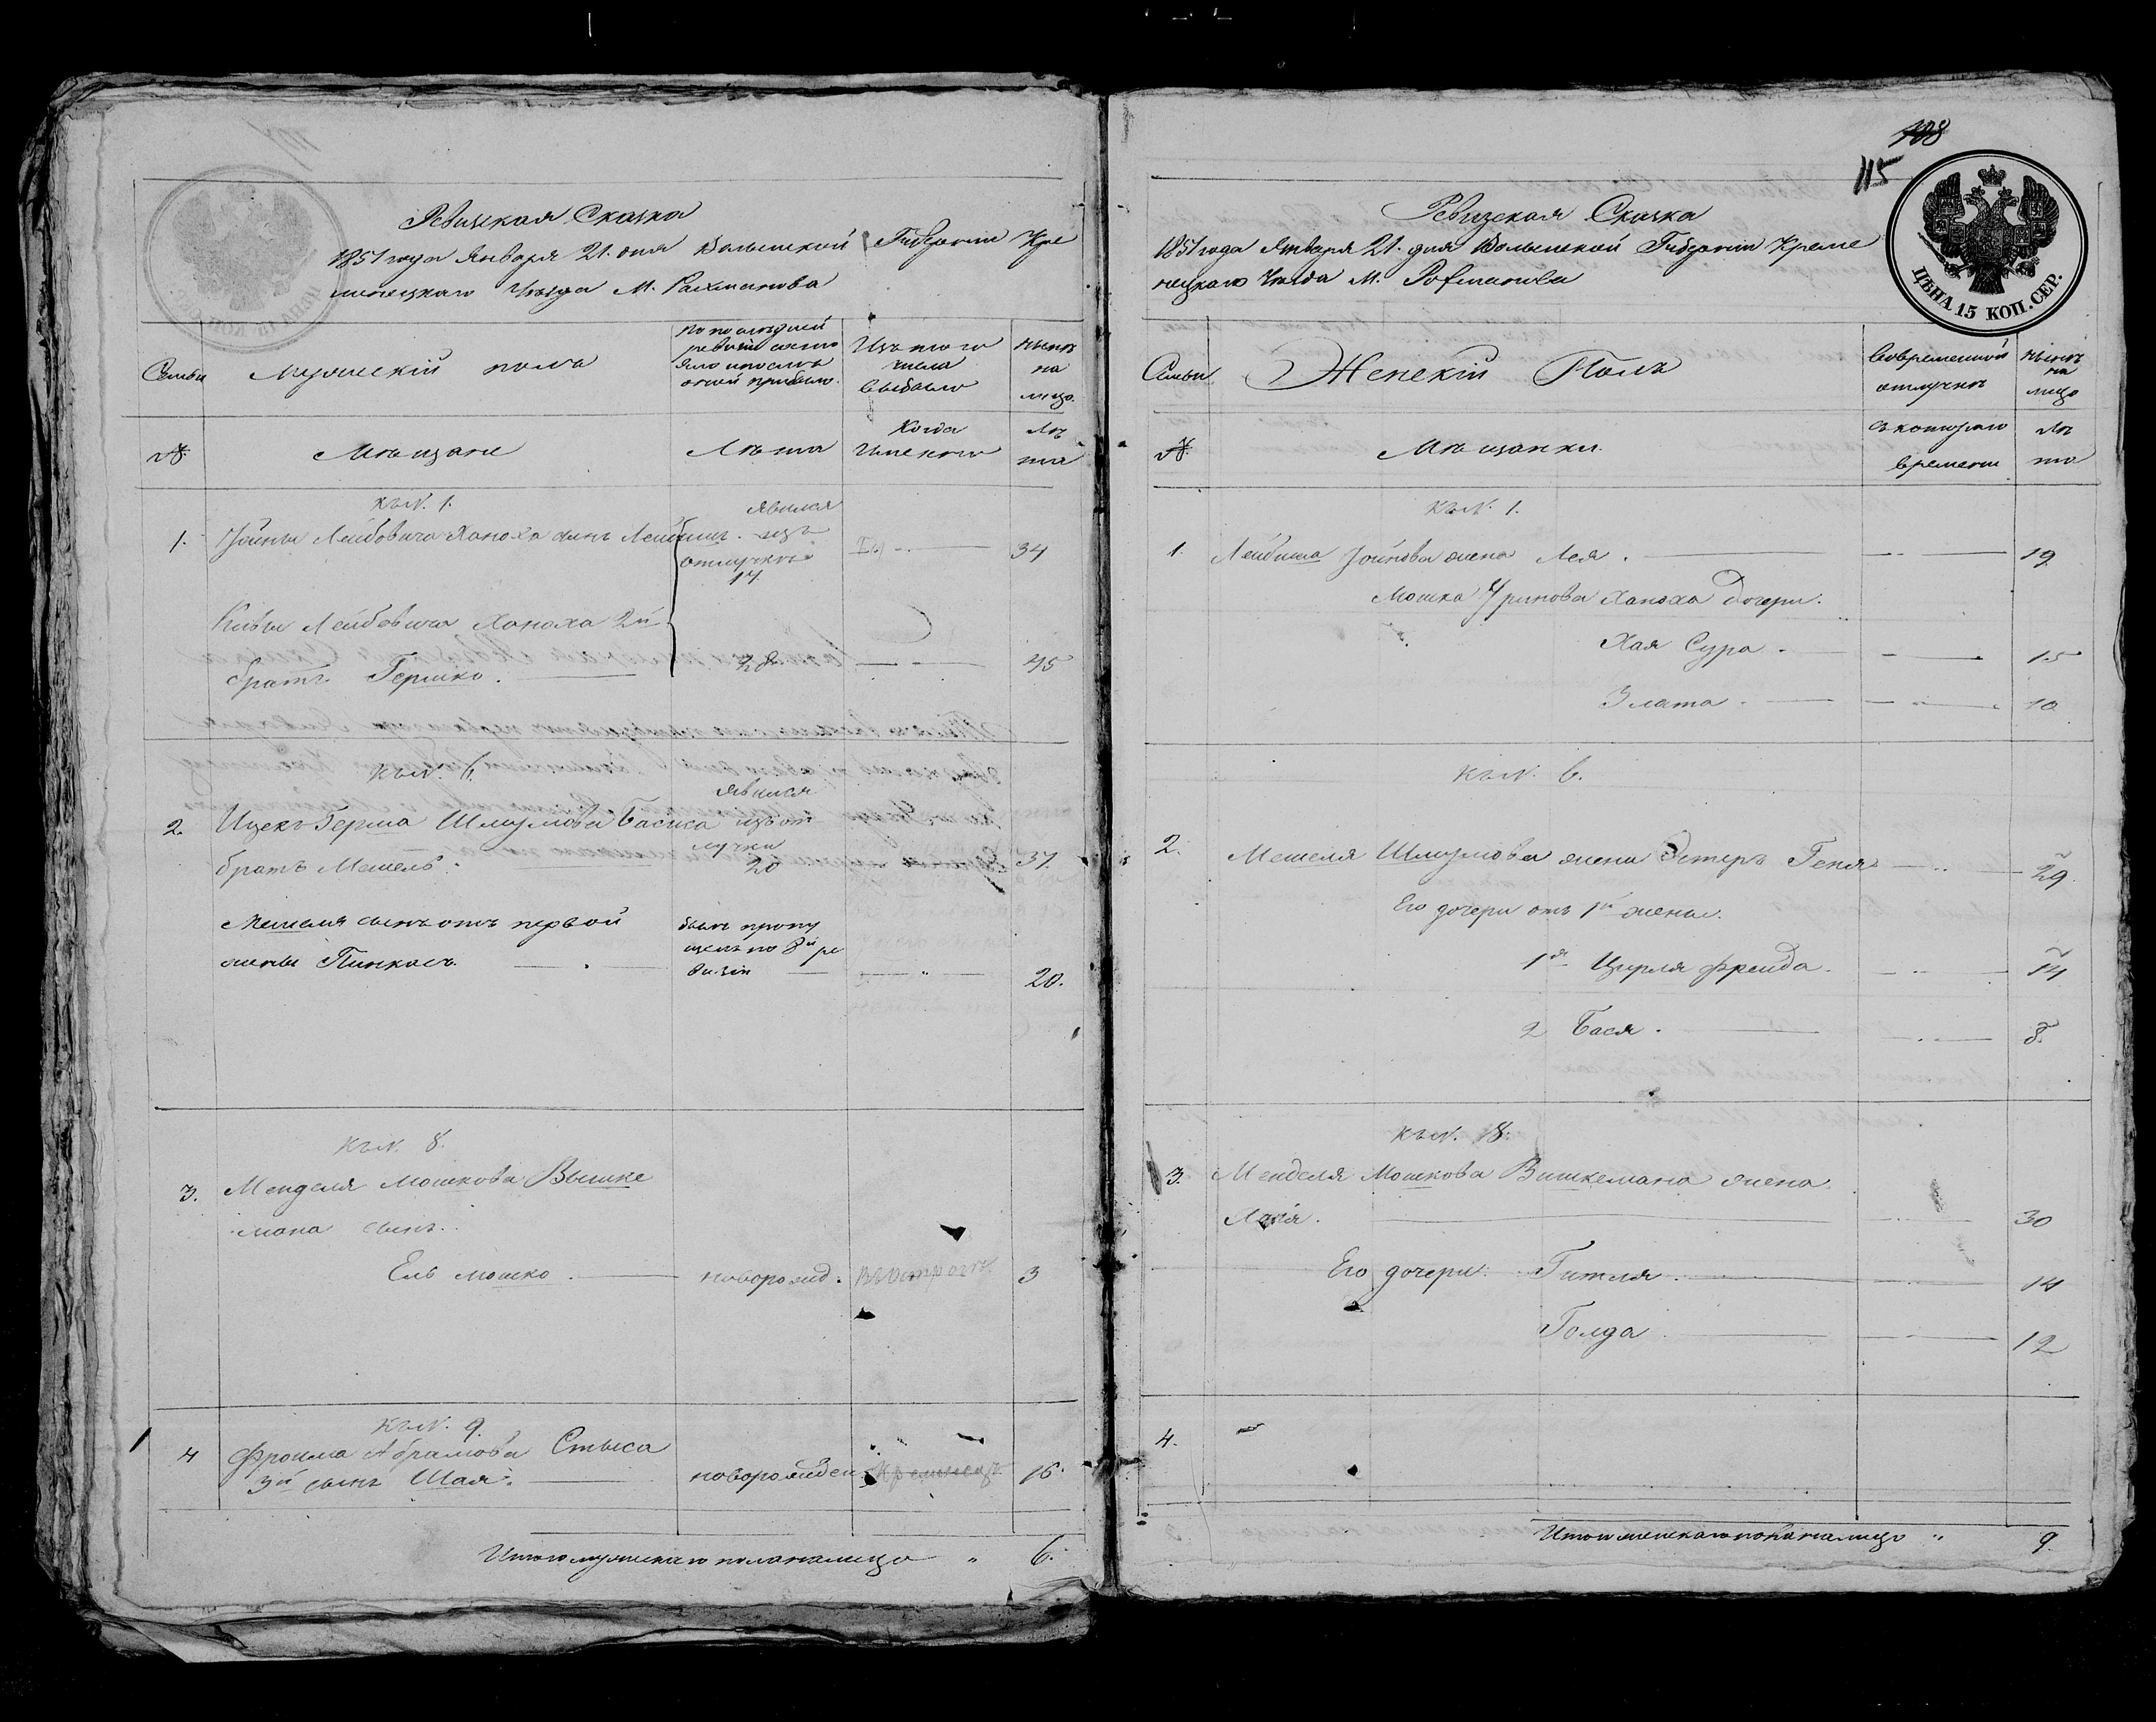 Ревизская Сказка
1851 года Января 21. дня Волынской Губернии Кре
менецкаго Уѣзда М. Рахманова
Семьи
Мужескій полъ
По послѣдней
ревизіи состо
яло и послѣ
оной прибыло.
Изъ того
числа
выбыло
Нынѣ
на
лицо.
№.
Мѣщане
Лѣта
Когда
Именно
Лѣ
та
къ №. 1.
1.
Лейбовича Ханоха сынъ Лейбишъ.
явился
изъ
отлучки
17
34
Кивы Лейбовича Ханоха 2й
братъ Гершко.
28
45
къ №. 6.
2.
Ицекъ Герша Шмулова Басиса
братъ Мешель.
явился
изъ от
лучки
20
37.
Мешеля сынъ отъ первой
жены Пинкасъ.
былъ пропу
щенъ по 8й ре
визіи
20.
къ №. 8.
3.
Менделя Мошкова Вышке
мана сынъ.
Ель Мошко.
новорожд.
3
къ №. 9.
4
Фроима Абрамова Стыса
3й сынъ Шая.
новорожден
16.
Итого мужескаго пола на лицо " 6.
108
115
ЦѢНА 15 КОП. СЕР.
Ревизская Сказка
1851 года Января 21. дня Волынской Губерніи Креме
нецкаго Уѣзда М. Рохманова
Семьи
Женскій Полъ
Во временной
отлучкѣ
Нынѣ
на
лицо
№.
Мѣщанки.
Съ котораго
времени
Лѣ
та
къ №. 1.
1. Лейбиша Іойнова жена Лея. 19
Мошка Ханоха дочери:
Хая Сура. 15
Злата. 10
къ №. 6.
2. Мешеля Шмулова жена Эстеръ Геня 29.
Его дочери отъ 1й жены.
1я Цирля Фрейда. 14
2 Бася. 8.
къ №. 8.
3. Менделя Мошкова Вишкемана жена
30
Его дочери: Гитля. 14
Голда 12
4.
Итого женскаго пола на лицо " 9.